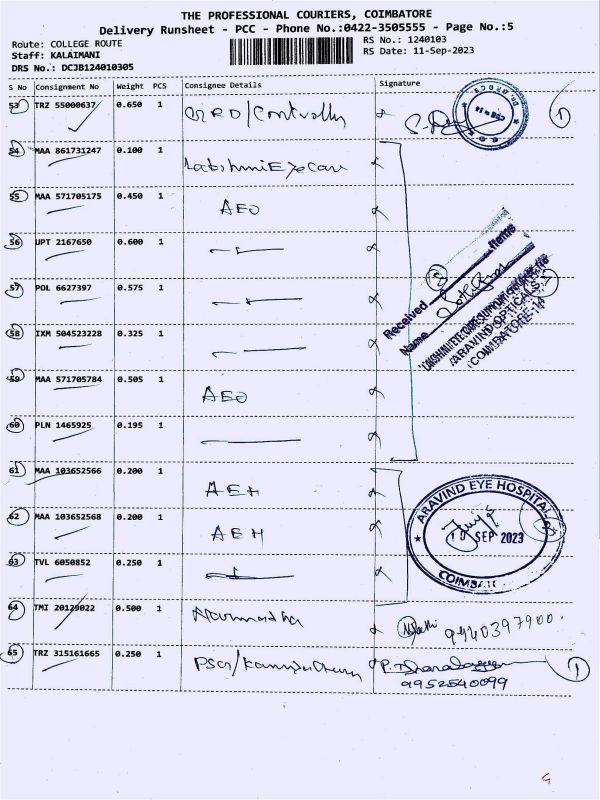 THE PROFESSIONAL COURIERS, COIMBATORE
Delivery Runsheet - PCC - Phone No.:0422-3505555 - Page No.:5
Route: COLLEGE ROUTE
Staff: KALAIMANI
DRS No.: DCJB124010305
RS No.: 1240103
RS Date: 11-Sep-2023
S No Consignment No Weight PCS Consignee Details Signature
53 TRZ 55000637 0.650 1
54 MAA 861731247 0.100 1 Lakshmi Eye Care
55 MAA 571705175 0.450 1 AEO
56 UPT 2167650 0.600 1
57 POL 6627397 0.575 1
58 IXM 504523228 0.325 1
59 MAA 571705784 0.505 1 AEO
60 PLN 1465925 0.195 1
Received Items
Name
ARAVIND OPTICALS
COIMBATORE-14
61 MAA 103652566 0.200 1 AEH
62 MAA 103652568 0.200 1 AEH
63 TVL 6050852 0.250 1
ARAVIND EYE HOSPITAL
SEP 2023
64 TMI 20129022 0.500 1 9940397900
65 TRZ 315161665 0.250 1
9952540099